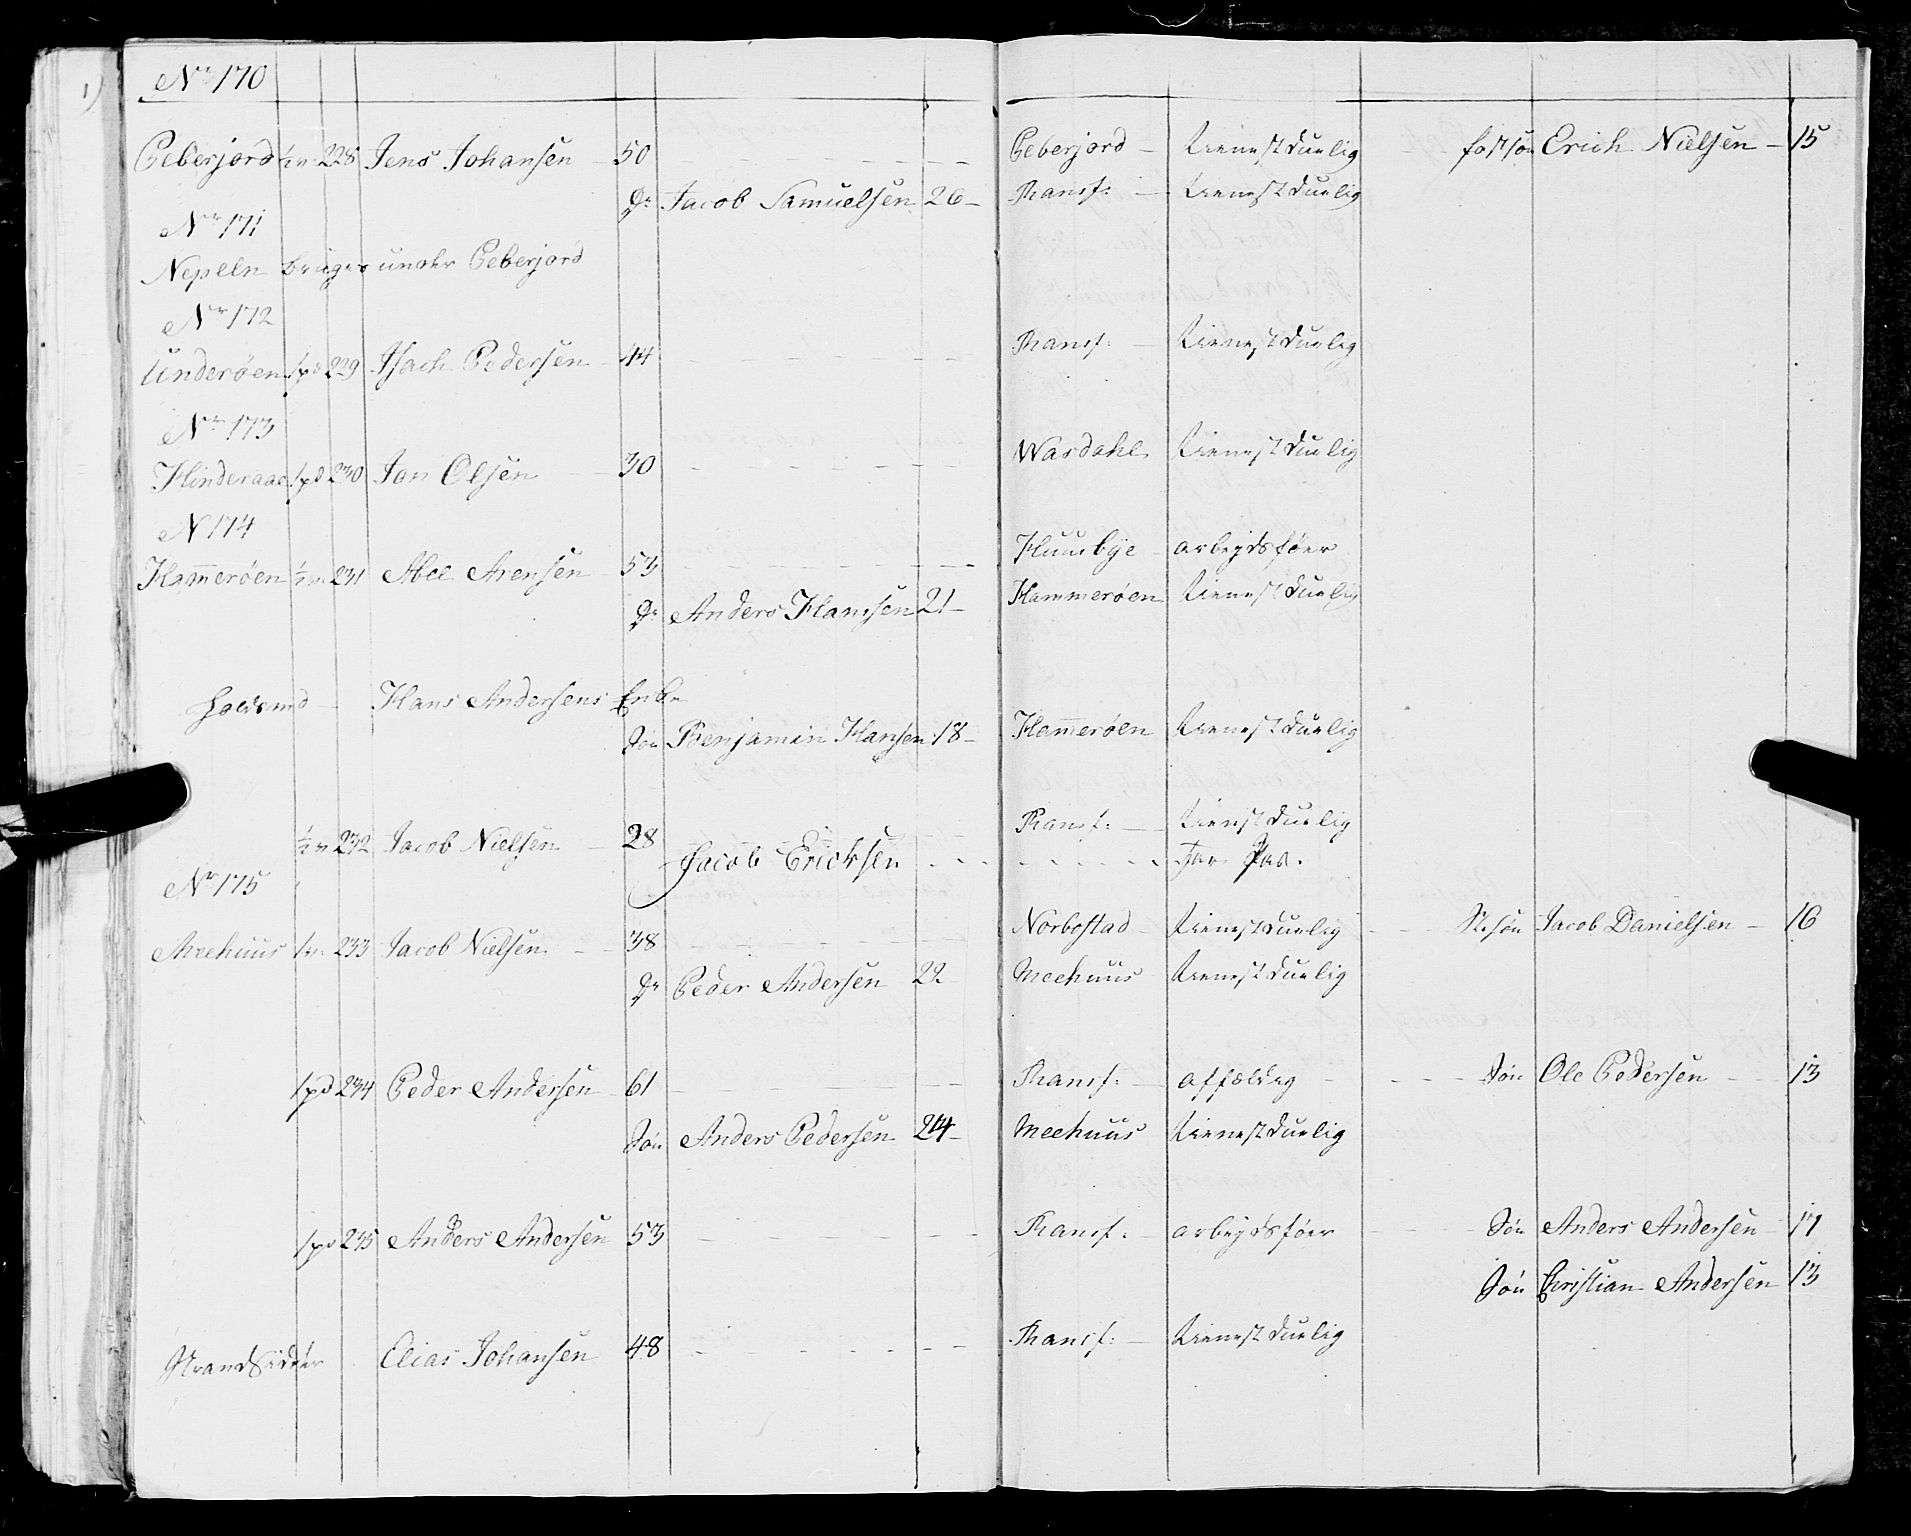 1)
No 170
Peberjord 228 Jens Johansen 50 Peberjord tienestduelig fostsøn Erich Nielsen 15
Dr Jacob Samuelsen 26 Ransf: tienestduelig
Nr 171
Nepeln bruges under Peberjord
Nr 172
Underøen 1pd 229 Isach Pedersen 44 Ransf: tienestduelig
Nr 173
Hinderaae 1pd 230 Jon Olsen 30 Wasdahl tienestduelig
N 174
Ham̄erøen 231 Abel Arensen 53 Huusbye arbeydsføer
Dr Anders Hansen 21 Hammerøen tienestduelig
Hans Andersens Enke
Søn Benjamin Hansen 18 Ham̄erøen tienestduelig
232 Jacob Nielsen 28 Ransf: tienstduelig
Jacob Ericksen har Pas.
Nr 175
Meehuus 233 Jacob Nielsen 38 Norbostad tienestduelig St.søn Jacob Danielsen 16
Dr Peder Andersen 22 Meehuus tienestduelig
1pd 234 Peder Andersen 61 Ransf: affældig Søn Ole Pedersen 13
Søn Anders Pedersen 24 Meehuus tienestduelig
1pd 235 Anders Andersen 53 Ransf: arbeydsføer Søn Anders Andersen 17
Søn Christian Andersen 13
Strandsidder Elias Johansen 48 Ransf: tienestduelig